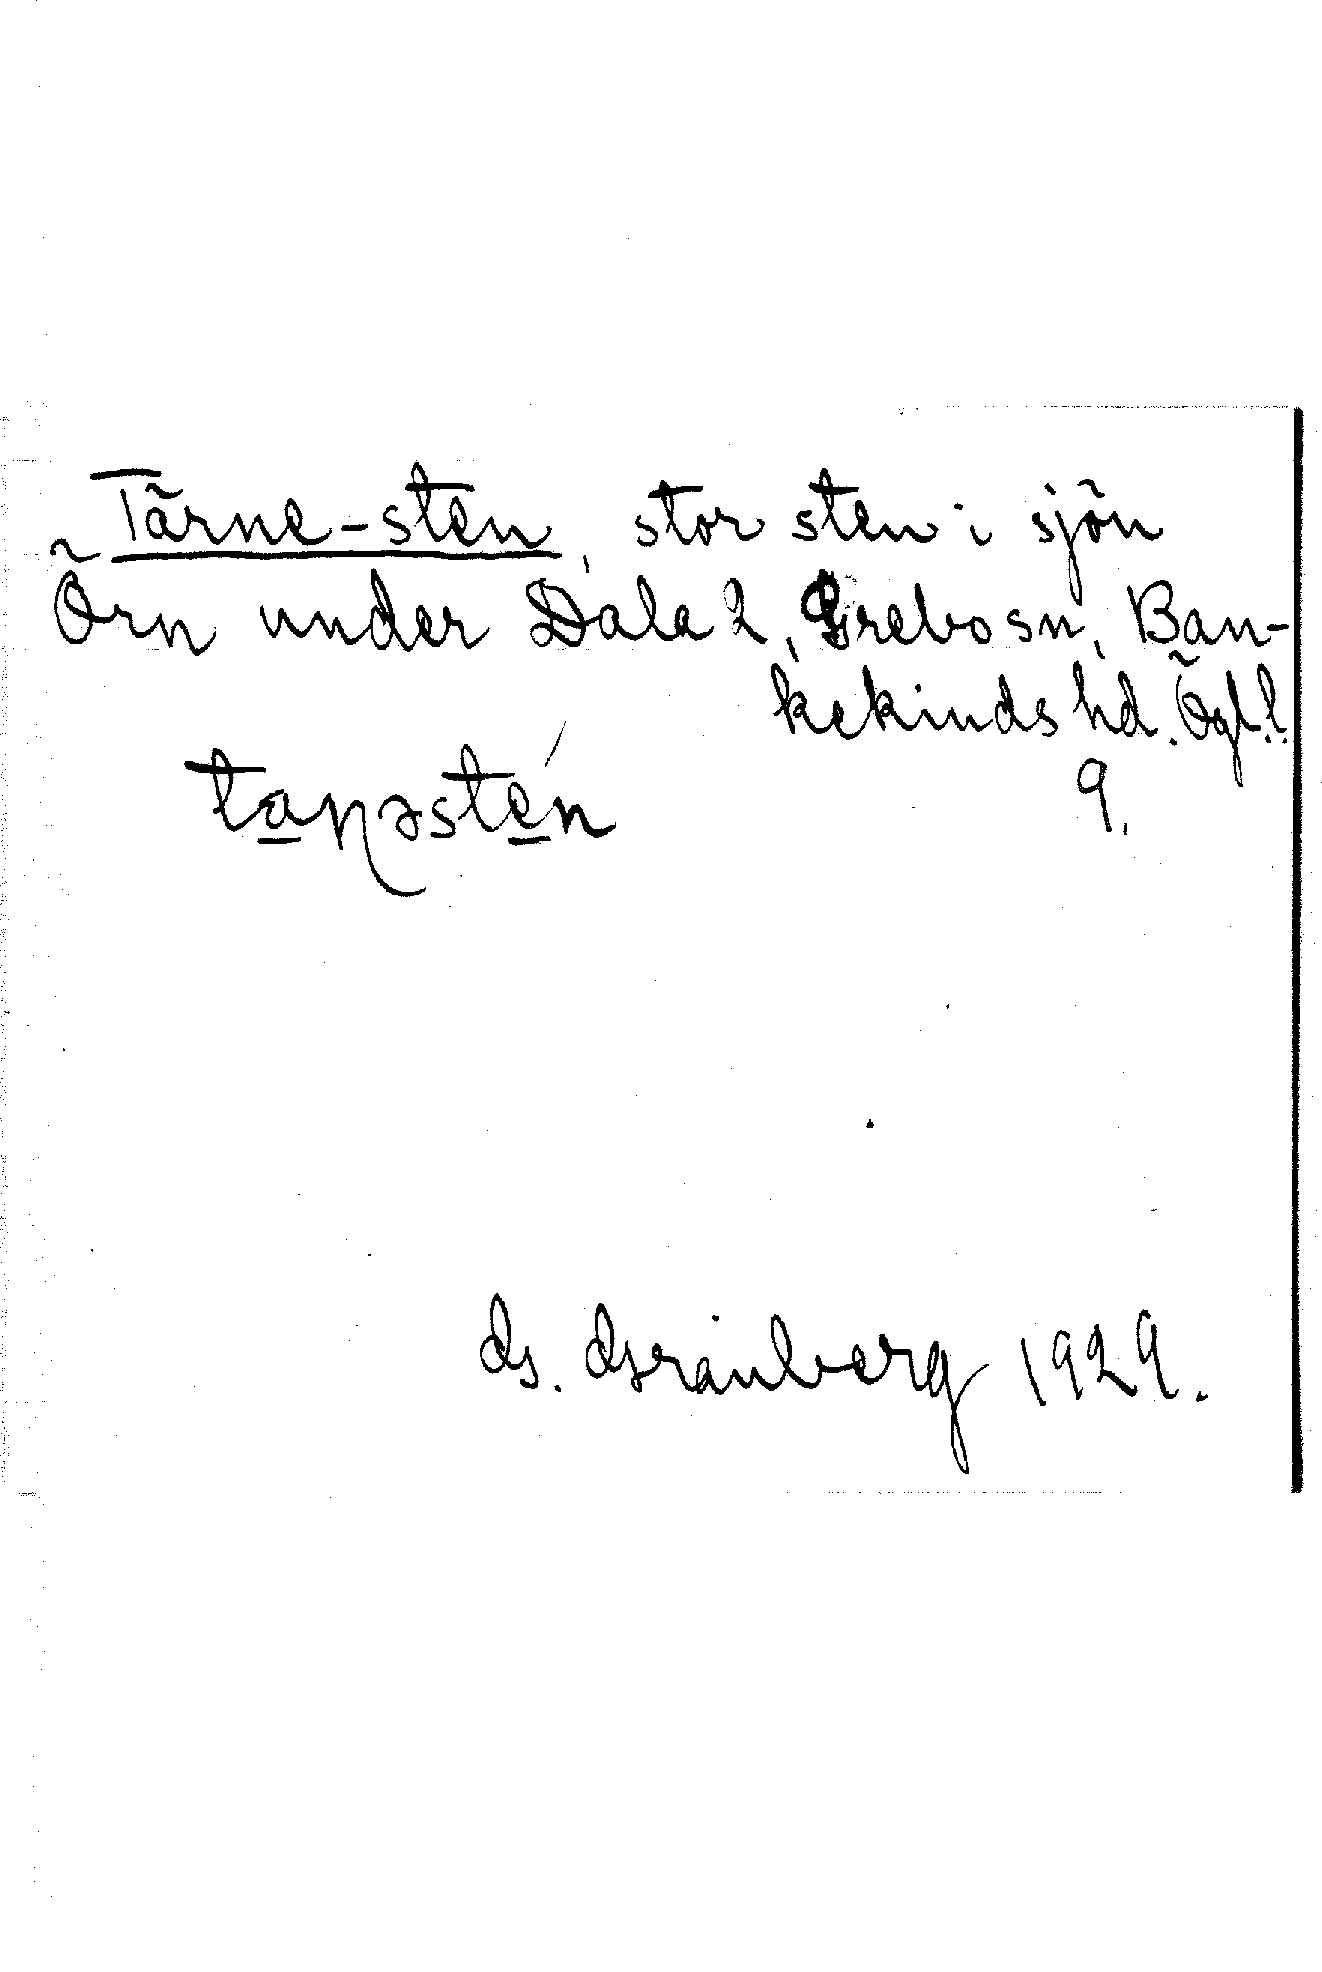 Tärne-sten, stor sten i sjön
Örn under Dala 2, Grebo sn, Ban-
kekinds hd. Ögl.l.
9.
taɳəstén
G. Granberg 1929.